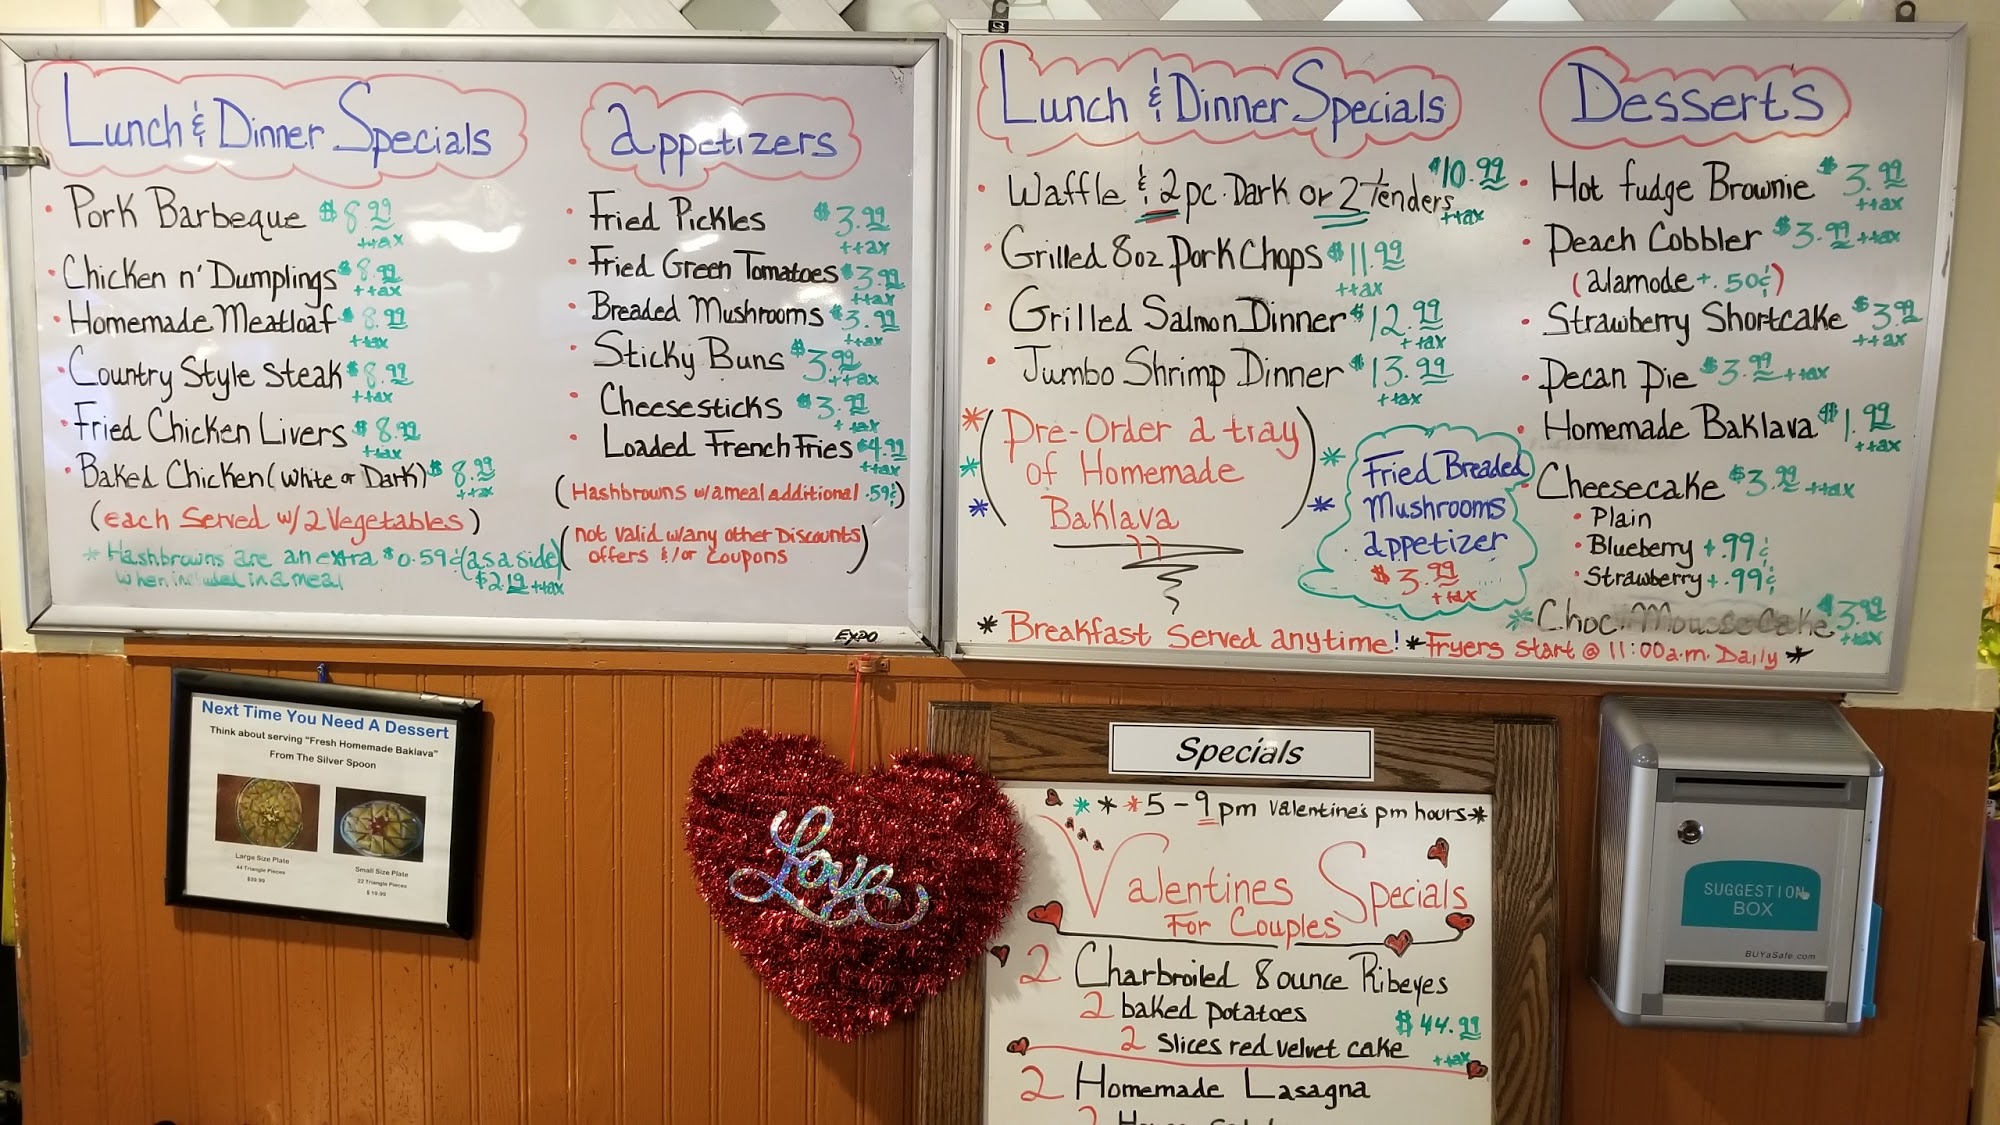 Lunch & Dinner Specials
• Pork Barbeque $8.99 +tax
• Chicken n' Dumplings $8.99 +tax
• Homemade Meatloaf $8.99 +tax
• Country Style Steak $8.99 +tax
• Fried Chicken Livers $8.99 +tax
• Baked Chicken (White or Dark) $8.99 +tax
(each Served w/2 Vegetables)
* Hashbrowns are an extra $0.59¢ (as a side)
when included in a meal $2.19 +tax
appetizers
• Fried Pickles $3.99 +tax
• Fried Green Tomatoes $3.99 +tax
• Breaded Mushrooms $3.99 +tax
• Sticky Buns $3.99 +tax
• Cheesesticks $3.99 +tax
• Loaded French Fries $4.99 +tax
(Hashbrowns w/a meal additional .59¢)
(not valid w/any other Discounts
offers &/or Coupons)
EXPO
Lunch & Dinner Specials
• Waffle & 2pc. Dark or 2 Tenders $10.99 +tax
• Grilled 8oz Pork Chops $11.99 +tax
• Grilled Salmon Dinner $12.99 +tax
• Jumbo Shrimp Dinner $13.99 +tax
(Pre-Order a tray
of Homemade
Baklava)
Fried Breaded
Mushrooms
appetizer
$3.99
+tax
* Breakfast Served anytime! * Fryers start @ 11:00 a.m. Daily *
Desserts
• Hot fudge Brownie $3.99 +tax
• Peach Cobbler $3.99 +tax
(alamode +.50¢)
• Strawberry Shortcake $3.99 +tax
• Pecan Pie $3.99 +tax
• Homemade Baklava $1.99 +tax
• Cheesecake $3.99 +tax
• Plain
• Blueberry +.99¢
• Strawberry +.99¢
* Choc. Mousse Cake $3.99 +tax
Next Time You Need A Dessert
Think about serving "Fresh Homemade Baklava"
From The Silver Spoon
Large Size Plate
44 Triangle Pieces
$39.99
Small Size Plate
22 Triangle Pieces
$ 19.99
Love
Specials
* * * 5 - 9 pm Valentine's pm hours *
Valentines Specials
For Couples
2 Charbroiled 8 ounce Ribeyes
2 baked potatoes
2 slices red velvet cake $44.99 +tax
2 Homemade Lasagna
SUGGESTION
BOX
BUYaSafe.com